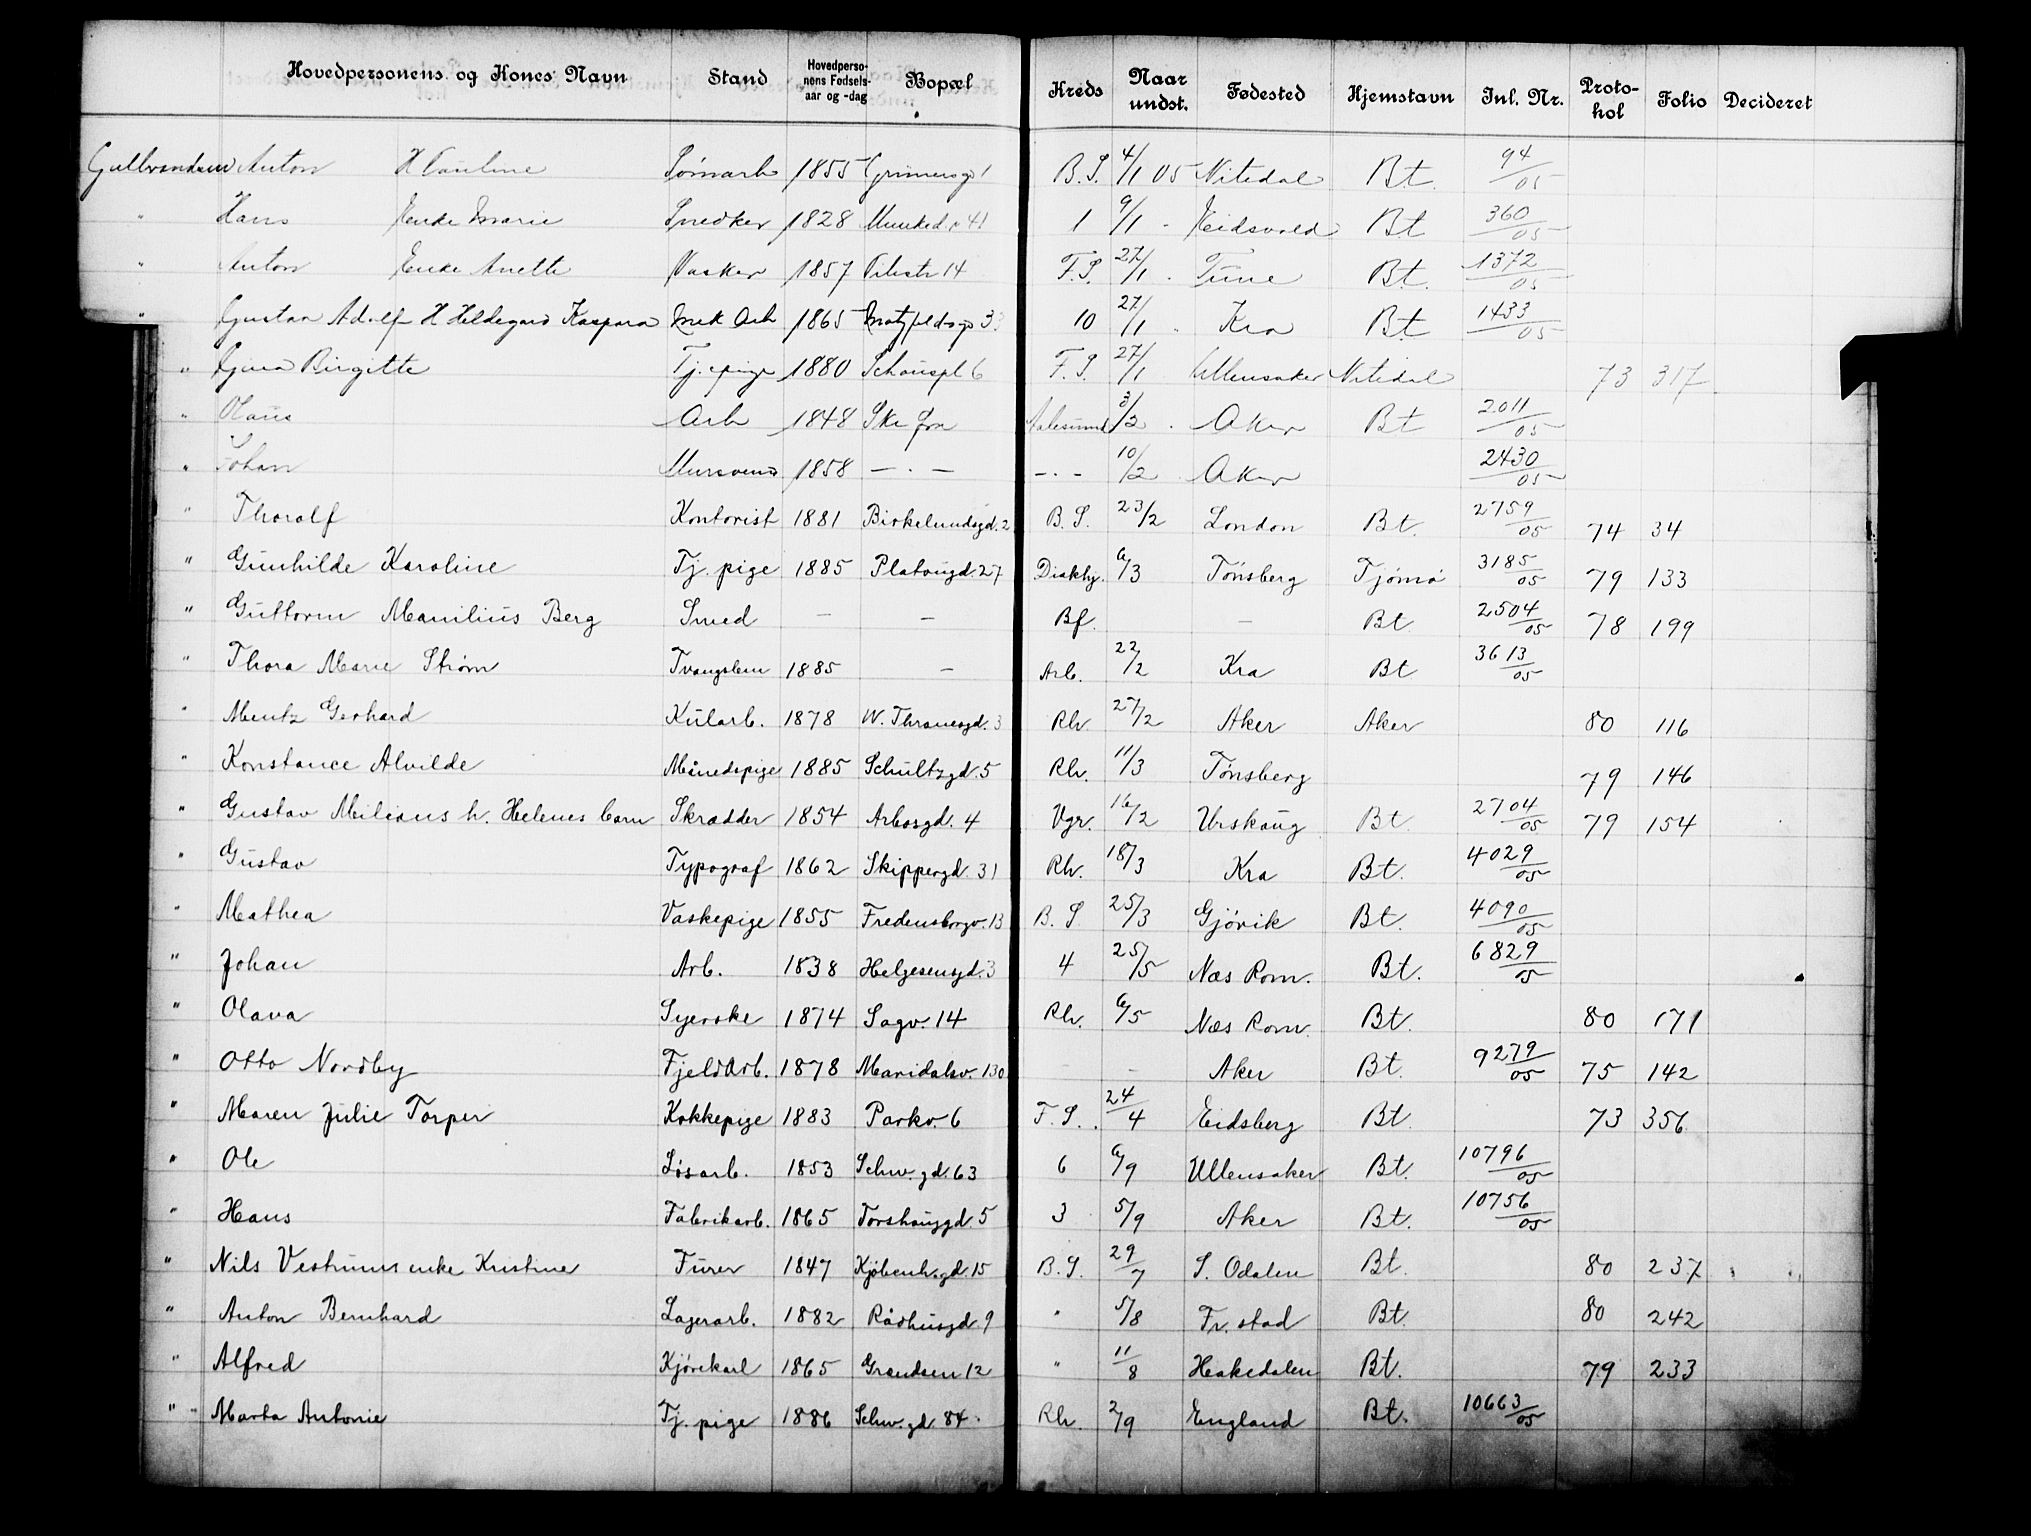 Hovedpersonens og Kones Navn Stand Hovedpersonens Fødselsaar og -dag Bopæl Kreds Naar undst. Fødested Hjemstavn Inl. Nr. Protokol Folio Decideret
Gulbrandsen Anton H Pauline Sømarb 1855 Grünersg 1 B.S. 4/1 05 Nitedal Bt. 94/05
" Hans Enke Marie Snedker 1828 Munked. 41 1 9/1 - Eidsvold Bt 360/05
" Anton Enke Anette Vasker 1857 Pilestr 14 F.S. 27/1 - Tune Bt. 1372/05
" Gustav Adolf H Hildegard Kaspara Mek Arb 1865 33 10 27/1 - Kra Bt 1433/05
" Gina Birgitte Tj. pige 1880 Schouspl 6 F.S. 27/1 Ullensaker Nitedal 73 317
" Olaus Arb 1848 Ske fra Aalesund 3/2 - Aker Bt 2011/05
" Johan Mursvend 1858 — . — — . — 10/2 Aker 2430/05
" Thoralf Kontorist 1881 Birkelundsgd. 2 B.S. 23/2 London Bt. 2759/05 74 34
" Gunhilde Karoline Tj. pige 1885 Platougd. 27 Diakhj. 6/3 Tönsberg Tjömö 3185/05 79 133
" Guttorm Manilius Berg Smed — — Bf. — Bt 2504/05 78 199
" Thora Marie Strøm Tvangslem 1885 — Arb. 22/2 Kra Bt 3613/05
" Mentz Gerhard Kularb. 1878 W. Thranesgd. 3 Rh. 27/2 Aker Aker 80 116
" Konstance Alvilde Månedspige 1885 Schultzgd. 5 Rh. 11/3 Tønsberg 79 146
" Gustav Milians h. Helenes barn Skrædder 1854 Arbosgd. 4 Vgr. 16/2 Urskoug Bt. 2704/05 79 154
" Gustav Typograf 1862 Skippergd. 31 Rh. 18/3 Kra Bt. 4029/05
" Mathea Vaskepige 1855 Fredensborgv. 13 B. S 25/3 Gjövik Bt. 4090/05
" Johan Arb. 1838 Helgesensgd. 3 4 25/5 Næs Rom. Bt. 6829/05
" Olava Syerske 1874 Sagv. 14 Rh. 6/5 Næs Rom. Bt. 80 171
" Otto Nordby Fjeldarb. 1878 Maridalsv. 130 — — Aker Bt. 9279/05 75 142
" Maren Julie Torper Kokkepige 1883 Parkv. 6 F. S. 24/4 Eidsberg Bt. 73 356
" Ole Løsarb. 1853 Schw. gd. 63 6 6/9 Ullensaker Bt. 10796/05
" Hans Fabrikarb. 1865 Torshauggd. 5 3 5/9 Aker Bt. 10756/05
" Nils Vestrums enke Kristine Furer 1847 Kjöbenh. gd. 15 B. S. 29/7 S. Odalen Bt. 80 237
" Anton Bernhard Lagerarb. 1882 Rådhusgd. 9 " 5/8 Fr. stad Bt. 80 242
" Alfred Kjörekarl 1865 Grændsen 12 " 11/8 Hakedalen Bt. 79 233
" Marta Antonie Tj. pige 1886 Schw. gd. 84. Rh. 2/9 England Bt. 10663/05